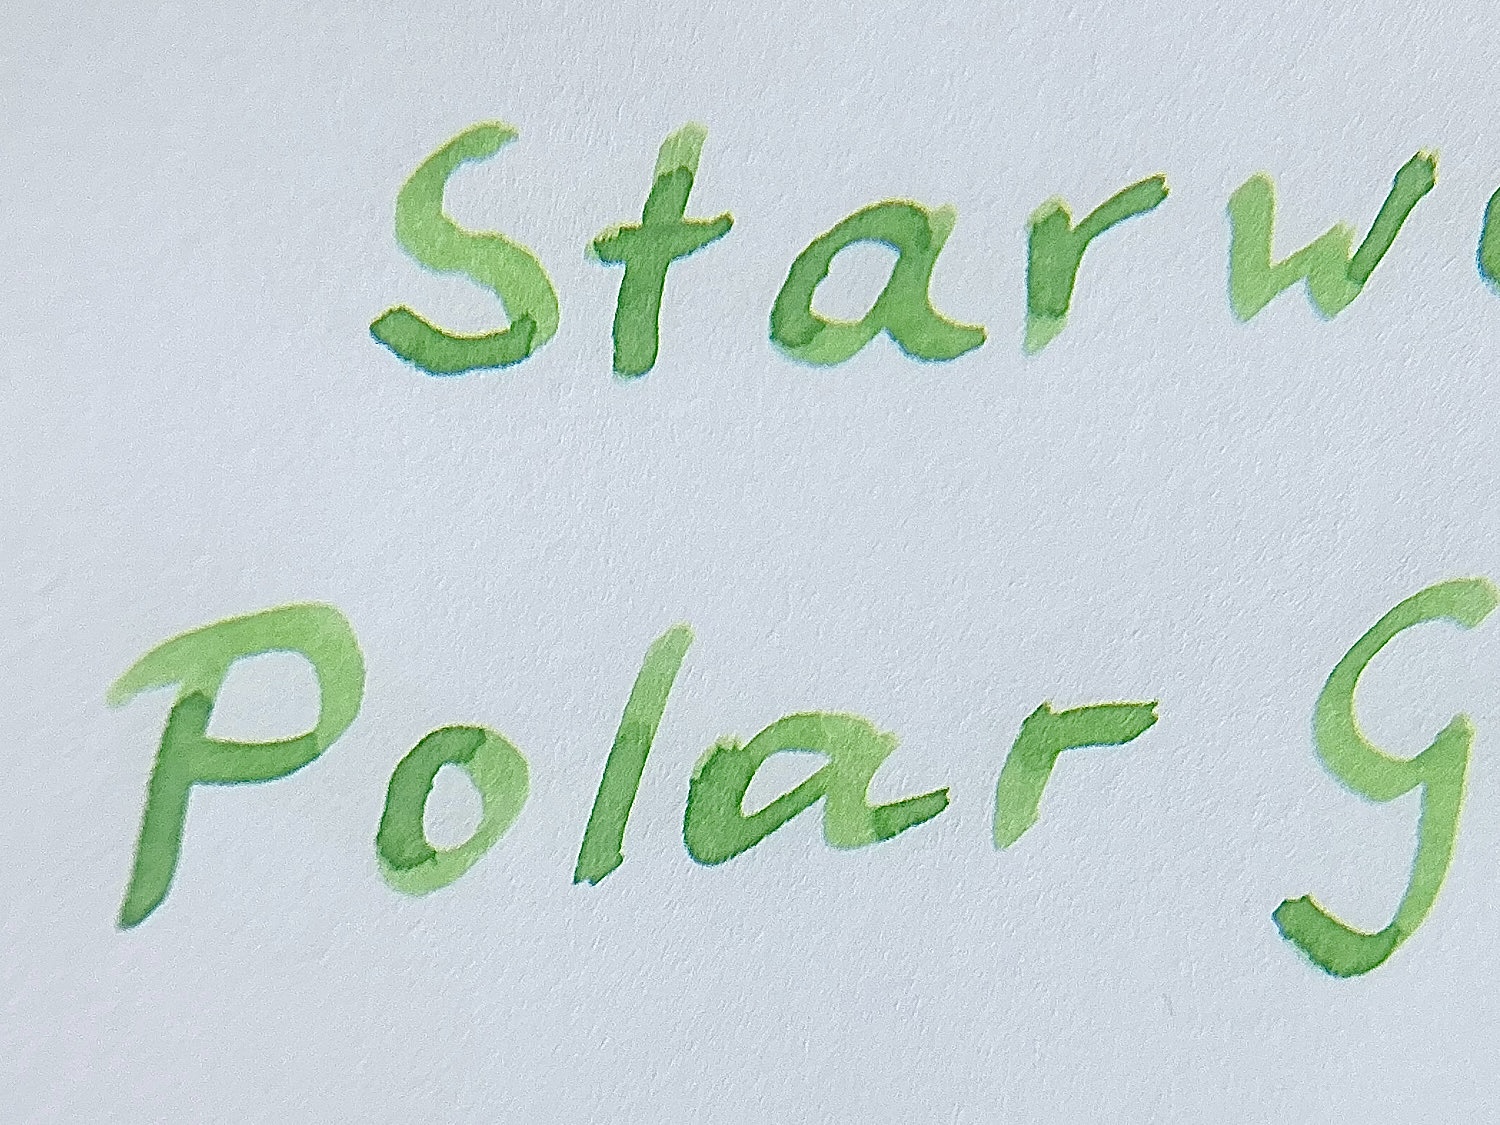 Starw
Polar G